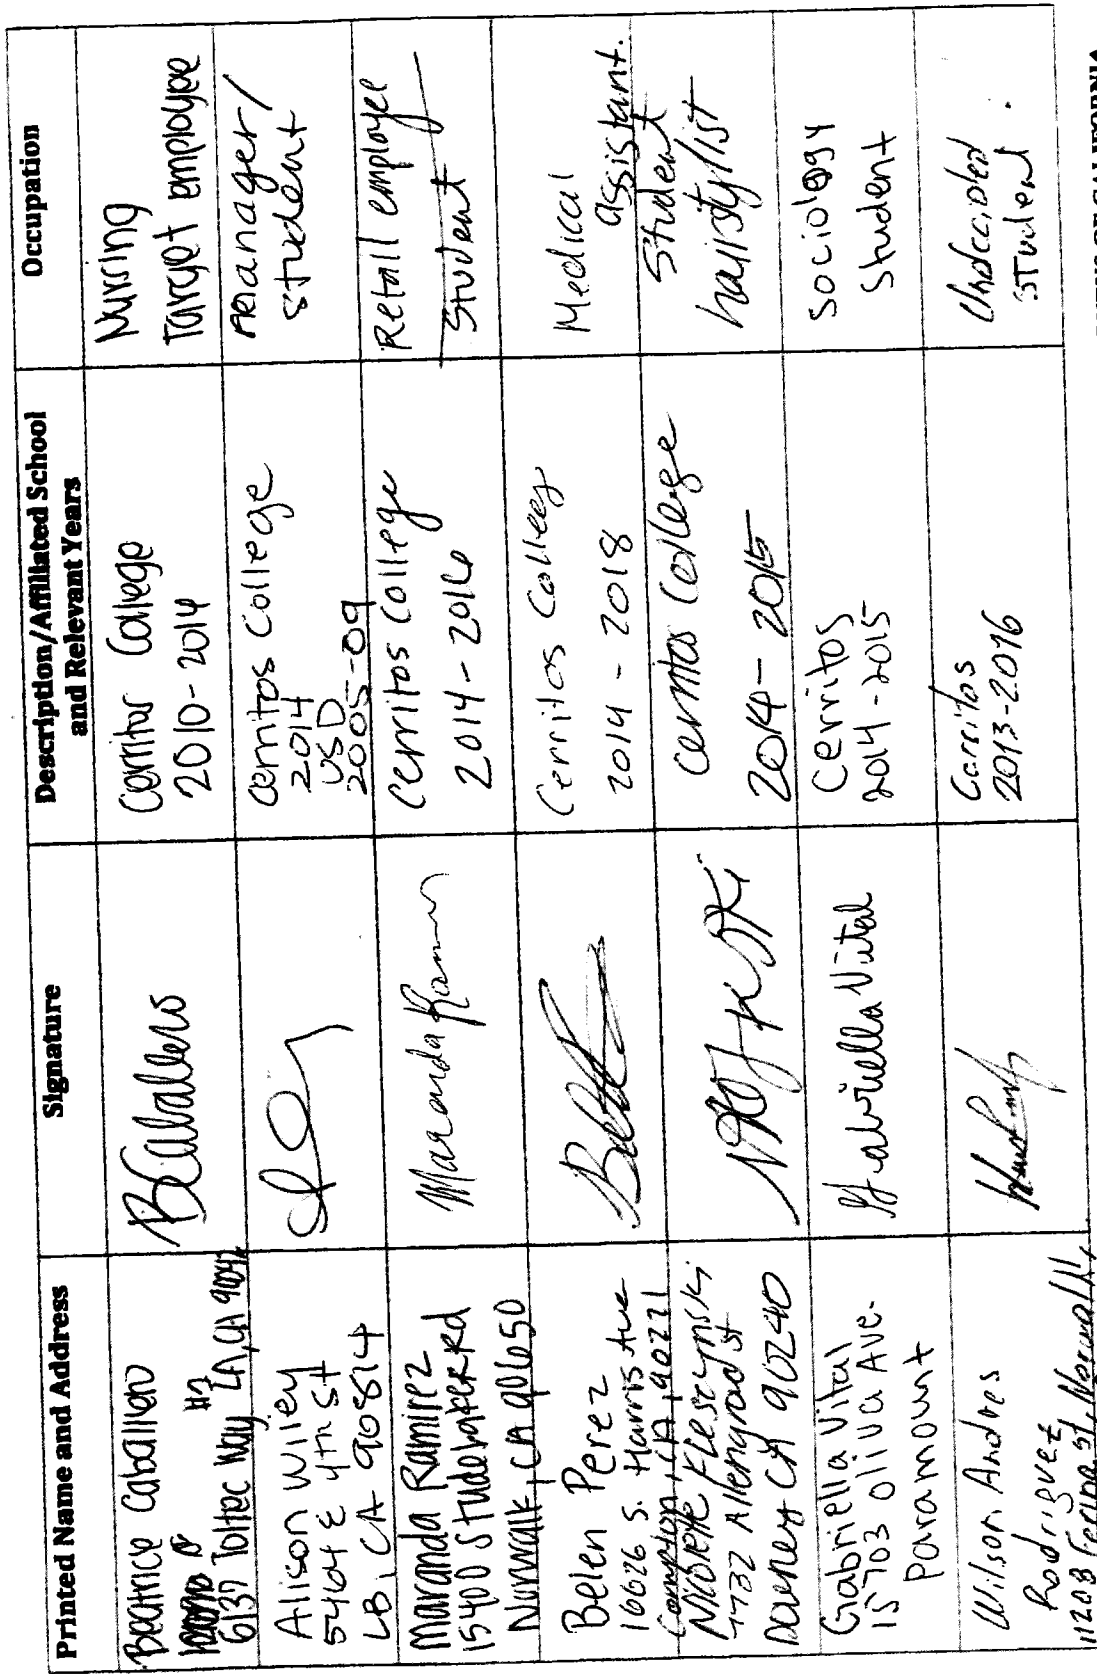 Printed Name and Address
Signature
Description/Affiliated School
and Relevant Years
Occupation
Beatrice Caballero
#3
6137 Toltec Way LA, CA 90042
BCaballero
Cerritos College
2010-2014
Nursing
Target employee
Alison Wiley
5464 E 4th St
LB, CA 90814
Cerritos College
2014
USD
2005-09
Manager/
student
Maranda Ramirez
15400 Studebaker Rd
Norwalk, CA 90650
Maranda Ramirez
Cerritos College
2014-2016
Retail employee
Student
Belen Perez
16626 S. Harris Ave
Compton, CA, 90221
Cerritos College
2014-2018
Medical
assistant.
Nicole Pleszynski
7732 Allengrove St
Downey CA 90240
Cerritos College
2014-2015
Student
hairstylist
Gabriella Vital
15703 Oliva Ave.
Paramount
Gabriella Vital
Cerritos
2014-2015
Sociology
Student
Wilson Andres
Rodriguez
11208 Ferina St, Norwalk,
Cerritos
2013-2016
Undecided
Student.